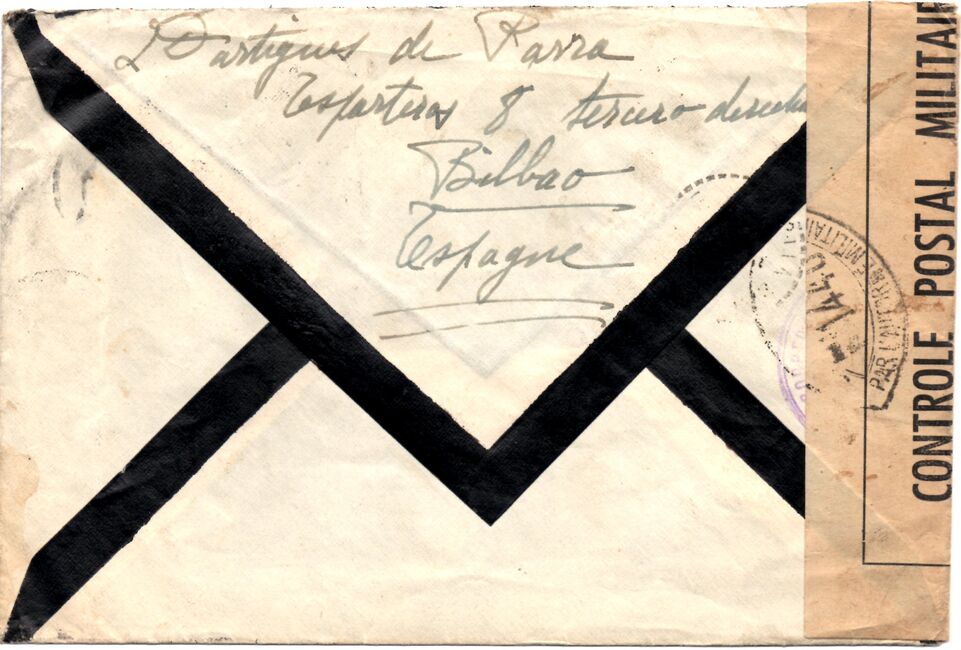 L Dartigues de Parra
Espartero 8 tercero derecha
Bilbao
Espagne
CONTROLE POSTAL MILITAIR
PAR L'AUTORITE MILITAIRE